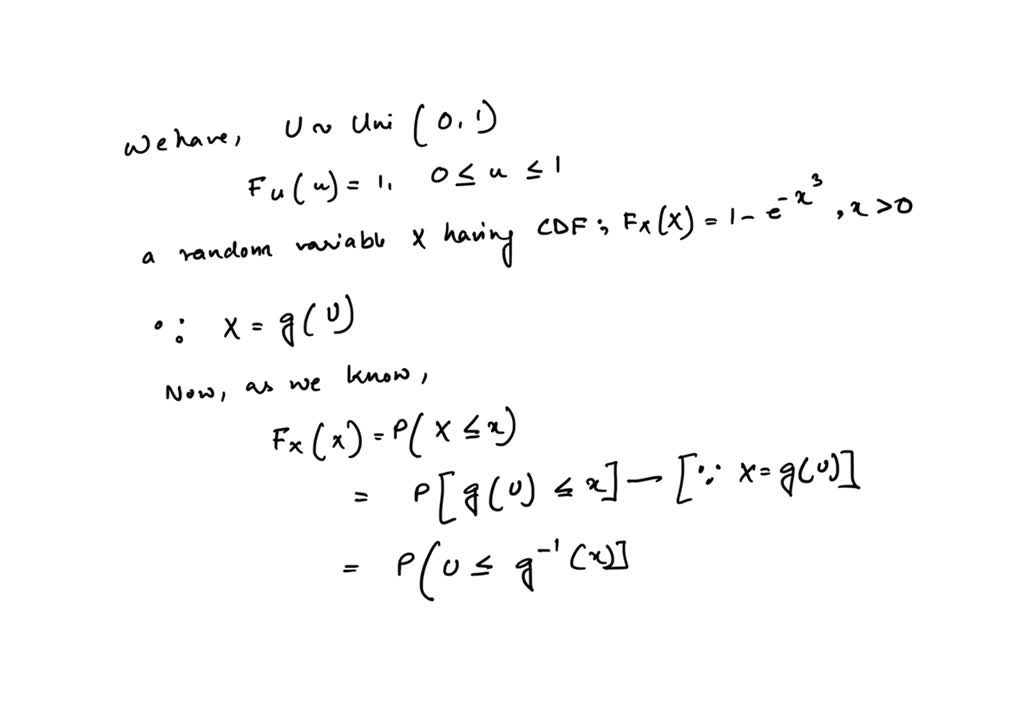 We have, U ~ Uni (0, 1)
Fu(u) = 1, 0 ≤ u ≤ 1
a random variable X having CDF; Fx(X) = 1 - e^-x^3, x > 0
∵ X = g(U)
Now, as we know,
Fx(x) = P(X ≤ x)
= P[g(U) ≤ x] — [∵ X = g(U)]
= P(U ≤ g^-1(x)]